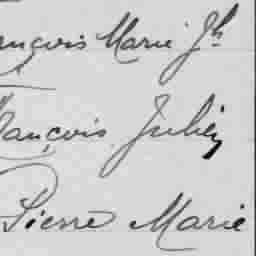 ançois Marie Jh
rançois Julien
Pierre Marie